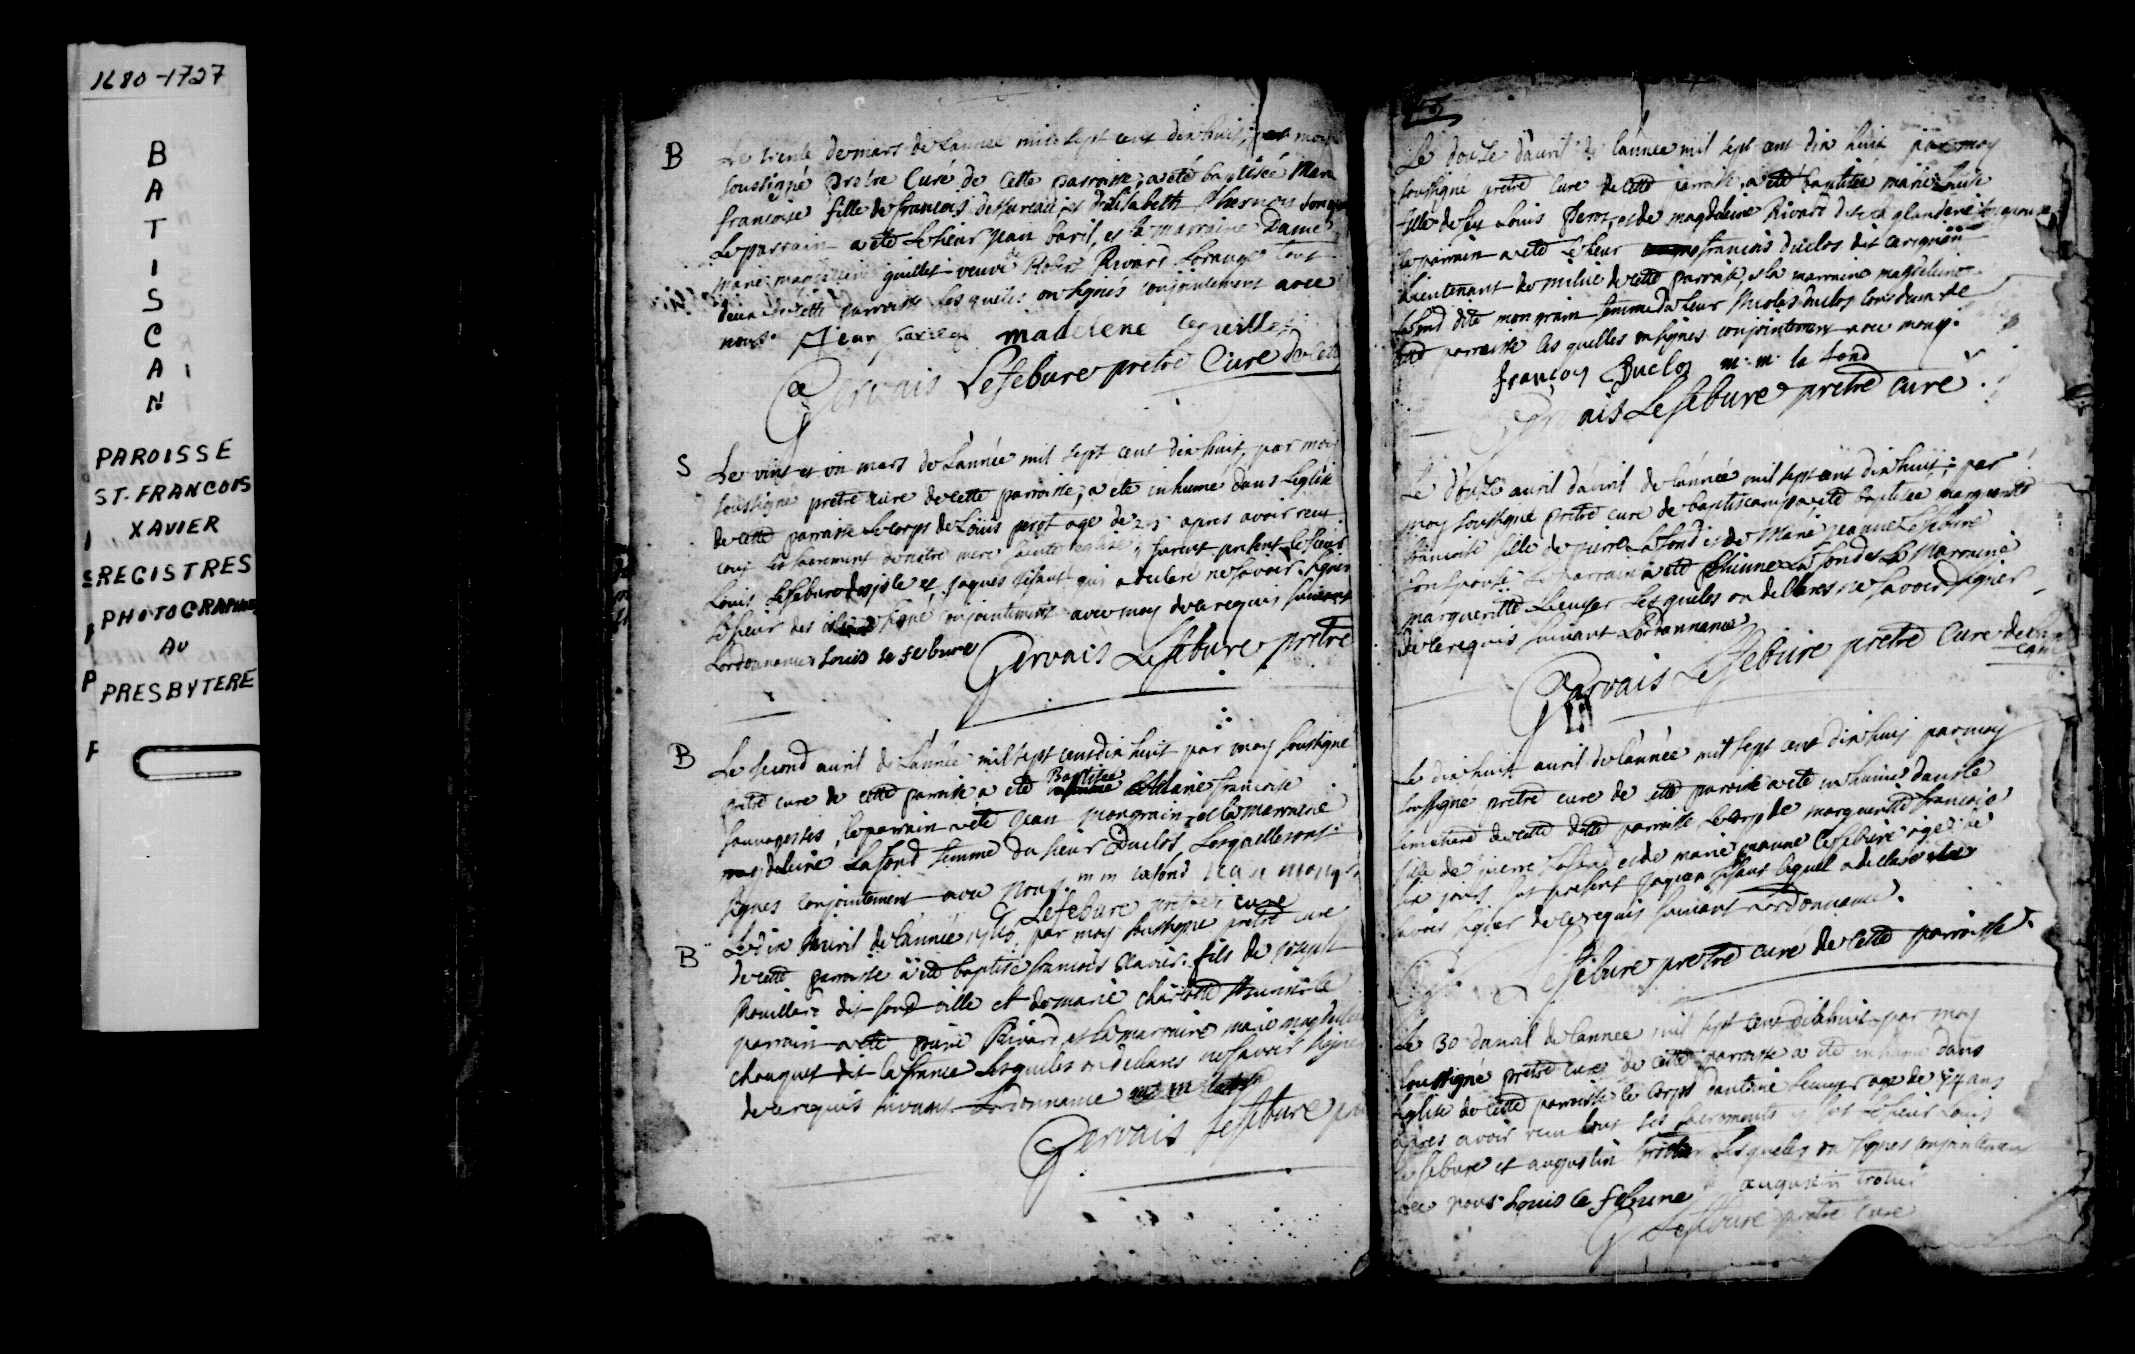 1680-1727
BATISCAN
PAROISSE
ST. FRANCOIS
XAVIER
REGISTRES
PHOTOGRAPHIE
AU
PRESBYTERE
B
Le trente de mars de Lannee mil sept cent dix huit, par moy
soussigné Pretre Curé de Cette parroisse, a eté baptisée Marie
francoise fille de francois desureau et delisabeth
Le parrain a eté le sieur Jean baril, et la marraine Dame
marie magdeleine guillet veuve de Robert Rivard Lorange tout
deux de cette parroisse lesquelles on signés conjointement avec
nous. Jean baril madelene Guillet
Gervais Lefebure pretre Curé de Cette
S
Le vint et un mars de L'année mil sept cent dix huit, par moy
soussigné pretre curé de cette parroisse, a eté inhumé dans Leglise
de cette parroisse Le corps de Louis perot agé de 25 apres avoir receu
tous les sacrement de notre mere sainte eglise, furent present le sieur
Louis Lefebure desjsle et Jaques qui a declaré ne savoir signer
Le sieur des signé conjointement avec moy de ce requis suivant
Lordonnance Louis le febure Gervais Lefebure pretre
B
Le second avril de L'année mil sept cent dix huit par moy soussigné
pretre curé de cette parroisse a eté Baptisee Marie francoise
sauvagesses, le parrain a eté Jean mongrain et la marraine
magdeleine Lafond femme du sieur Duclos, Lesquelles ont
signés conjointement avec nous. m m lafond Jean mongr
G Lefebure pretre curé
B
Le dix avril de Lannée 1718, par moy soussigné pretre curé
de cette parroisse a eté baptisé francois Xavier fils de joseph
Rouillard dit fond ville et de marie charlotte le
parrain a eté Rivard et la marraine marie magdeleine
chouquet dit la france Lesquelles on declares ne savoir signer
de ce requis suivant Lordonnance
Gervais Lefebure
Le douze davril de lannée mil sept cent dix huit par moy
soussigné pretre curé de cette parroisse, a eté baptisée marie
fille de feu Louis Perot, et de magdeleine Rivard dite la glanderie son epouse
le parrain a eté le sieur francois duclos dit carignan
Lieutenant de milice de cette parroisse, et la marraine magdeleine
Lafond dite mongrain femme du sieur Nicolas duclos tous deux de
parroisse les quelles on signés conjointement avec moy.
françois Duclos m. m. la fond
Gervais Lefebure pretre curé
Le douze avril davril de lannée mil sept cent dix huit; par
moy soussigné pretre curé de baptiscan a eté baptisée, marguerite
francoise fille de pierre Lafond et de Marie jeanne Lefebure
son epouse. Le parrain a eté Etienne Lafond et La Marraine
marguerite Lesquelles on declares ne savoir signer
de ce requis suivant Lordonnance
Gervais Lefebure pretre Curé de
Le dix huit avril de lannée mil sept cent dix huit par moy
soussigné pretre curé de cette parroisse a eté inhumé dans le
simetiere de cette ditte parroisse Le corps de marguerite francoise
fille de pierre Lafond et de marie jeanne Lefebure agée de
six jours fut present Jaques lequel a declaré ne
savoir signer de ce requis suivant Lordonnance.
Lefebure pretre curé de cette parroisse.
Le 30 davril de lannee mil sept cent dix huit par moy
soussigné pretre curé de cette parroisse a eté inhumé dans
leglise de cette parroisse le corps dantoine agé de ans
apres avoir receu tous les sacrements le sieur Louis
Lefebure et augustin trotier Lesquelles on signés conjointement
avec nous Louis le febure augustin trotier
G Lefebure pretre curé